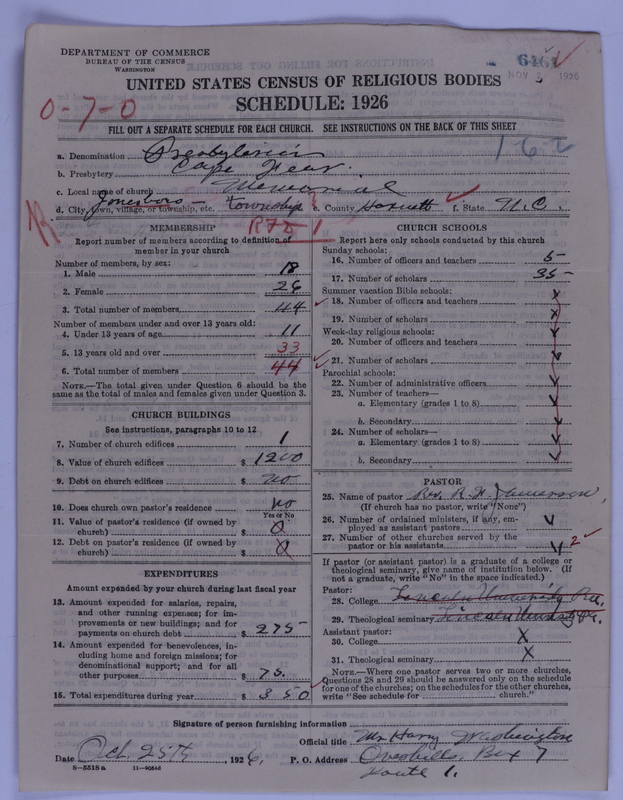 DEPARTMENT OF COMMERCE
BUREAU OF THE CENSUS
WASHINGTON
6461
NOV 3 1926
UNITED STATES CENSUS OF RELIGIOUS BODIES
SCHEDULE: 1926
0-7-0
FILL OUT A SEPARATE SCHEDULE FOR EACH CHURCH. SEE INSTRUCTIONS ON THE BACK OF THIS SHEET
162
a. Denomination Presbyterian
b. Presbytery Cape Fear.
c. Local name of church Memorial
d. City, town, village, or township, etc. Jonesboro - township e. County Harnett f. State N.C.
MEMBERSHIP
Report number of members according to definition of
member in your church
Number of members, by sex:
1. Male 18
2. Female 26
3. Total number of members 44
Number of members under and over 13 years old:
4. Under 13 years of age 11
5. 13 years old and over 33
6. Total number of members 44
NOTE.—The total given under Question 6 should be the
same as the total of males and females given under Question 3.
CHURCH BUILDINGS
See instructions, paragraphs 10 to 12
7. Number of church edifices 1
8. Value of church edifices $ 1200
9. Debt on church edifices $ no
10. Does church own pastor's residence no
Yes or No
11. Value of pastor's residence (if owned by
church) $ 0
12. Debt on pastor's residence (if owned by
church) $ 0
EXPENDITURES
Amount expended by your church during last fiscal year
13. Amount expended for salaries, repairs,
and other running expenses; for im-
provements or new buildings; and for
payments on church debt $ 275
14. Amount expended for benevolences, in-
cluding home and foreign missions; for
denominational support; and for all
other purposes $ 75.
15. Total expenditures during year $ 350
CHURCH SCHOOLS
Report here only schools conducted by this church
Sunday schools:
16. Number of officers and teachers 5
17. Number of scholars 35
Summer vacation Bible schools:
18. Number of officers and teachers x
19. Number of scholars x
Week-day religious schools:
20. Number of officers and teachers
21. Number of scholars
Parochial schools:
22. Number of administrative officers
23. Number of teachers—
a. Elementary (grades 1 to 8)
b. Secondary
24. Number of scholars—
a. Elementary (grades 1 to 8)
b. Secondary
PASTOR
25. Name of pastor Rev. R. H. Jamerson,
(If church has no pastor, write "None")
26. Number of ordained ministers, if any, em-
ployed as assistant pastors
27. Number of other churches served by the
pastor or his assistants 2
If pastor (or assistant pastor) is a graduate of college or
theological seminary, give name of institution below. (If
not a graduate, write "No" in the space indicated.)
Pastor:
28. College Lincoln University Pa.
29. Theological seminary Lincoln University Pa.
Assistant pastor:
30. College X
31. Theological seminary X
NOTE.—Where one pastor serves two or more churches,
Questions 28 and 29 should be answered only on the schedule
for one of the churches; on the schedules for the other churches,
write "See schedule for church."
Signature of person furnishing information
Official title Mr Harry Washington
Date Oct. 25th, 1926. P. O. Address Overhills, Box 7
Route 1.
8—5518 a